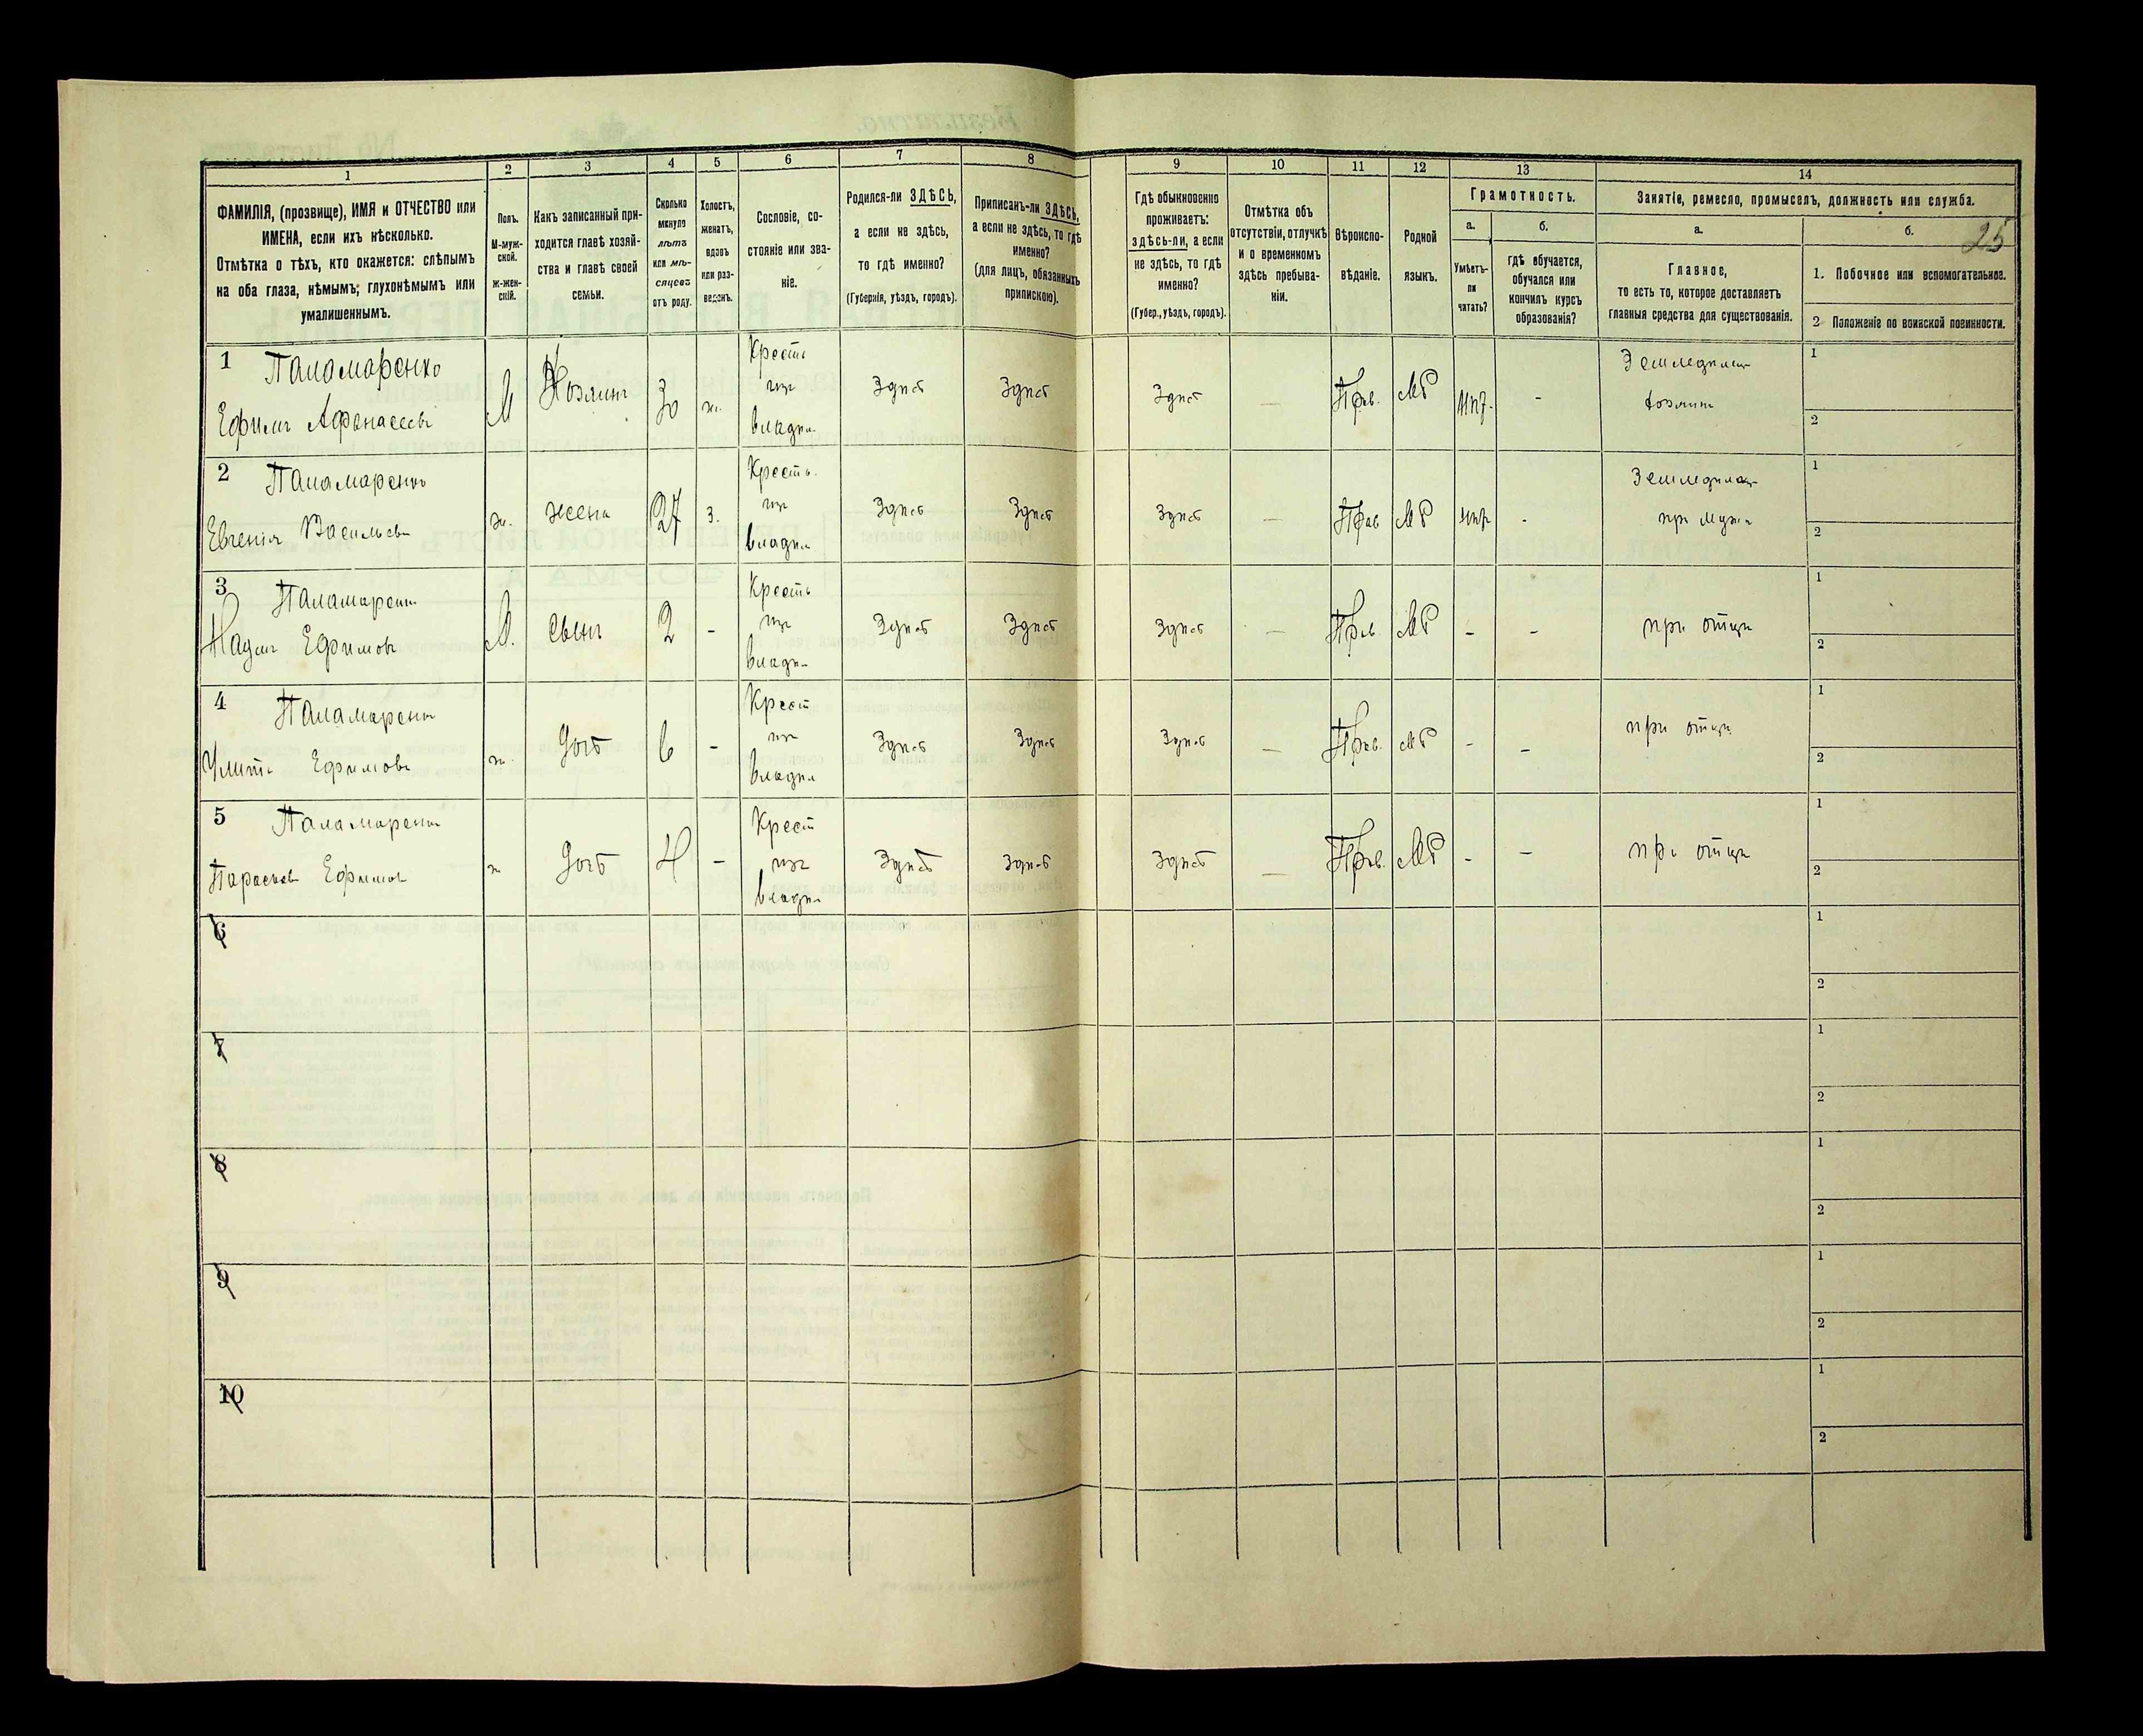 1
ФАМИЛІЯ, (прозвище), ИМЯ и ОТЧЕСТВО или
ИМЕНА, если ихъ нѣсколько.
Отмѣтка о тѣхъ, кто окажется: слѣпымъ
на оба глаза, нѣмымъ; глухонѣмымъ или
умалишеннымъ.
2
Полъ.
М-муж-
ской.
Ж-жен-
скій.
3
Какъ записанный при-
ходится главѣ хозяй-
ства и главѣ своей
семьи.
4
Сколько
минуло
лѣтъ
или мѣ-
сяцевъ
отъ роду.
5
Холостъ,
женатъ,
вдовъ
или раз-
веденъ.
6
Сословіе, со-
стояніе или зва-
ніе.
7
Родился-ли ЗДѢСЬ,
а если не здѣсь,
то гдѣ именно?
(Губернія, уѣздъ, городъ).
8
Приписанъ-ли ЗДѢСЬ,
а если не здѣсь, то гдѣ
именно?
(для лицъ, обязанныхъ
припискою).
9
Гдѣ обыкновенно
проживаетъ:
здѣсь-ли, а если
не здѣсь, то гдѣ
именно?
(Губер., уѣздъ, городъ).
10
Отмѣтка объ
отсутствіи, отлучкѣ
и о временномъ
здѣсь пребыва-
ніи.
11
Вѣроиспо-
вѣданіе.
12
Родной
языкъ.
13
Грамотность.
а.
Умѣетъ-
ли
читать?
б.
гдѣ обучается,
обучался или
кончилъ курсъ
образованія?
14
Занятіе, ремесло, промыселъ, должность или служба.
а.
Главное,
то есть то, которое доставляетъ
главныя средства для существованія.
б.
25
1. Побочное или вспомогательное.
2 Положеніе по воинской повинности.
1 Паламаренко
Ефимъ Афанасьевъ
М
Хозяинъ
30
ж.
Крестъ
изъ
владѣл
Здѣсь
Здѣсь
Здѣсь
—
Прав.
МР
нѣт.
-
Земледѣлец
хозяин
1
2
2 Паламаренко
Евгенія Васильев
ж.
жена
27
З.
Кресть.
изъ
владѣл
Здѣсь
Здѣсь
Здѣсь
—
Прав
МР
нѣт
-
Земледѣлец
при мужѣ
1
2
3 Паламарен
Ефимовъ
М.
сынъ
2
-
Кресть
изъ
владѣ
Здѣсь
Здѣсь
Здѣсь
—
Прав.
МР
-
-
при отцѣ
1
2
4 Паламарен
Улита Ефимова
ж.
дочь
6
-
Крест
изъ
владѣл
Здѣсь
Здѣсь
Здѣсь
—
Прав.
МР
-
-
при отцѣ
1
2
5 Паламарен
Парасков Ефимов
ж
дочь
4
-
Крест
изъ
владѣл
Здѣсь
Здѣсь
Здѣсь
—
Прав.
МР
-
—
при отцѣ
1
2
6
1
2
7
1
2
8
1
2
9
1
2
10
1
2